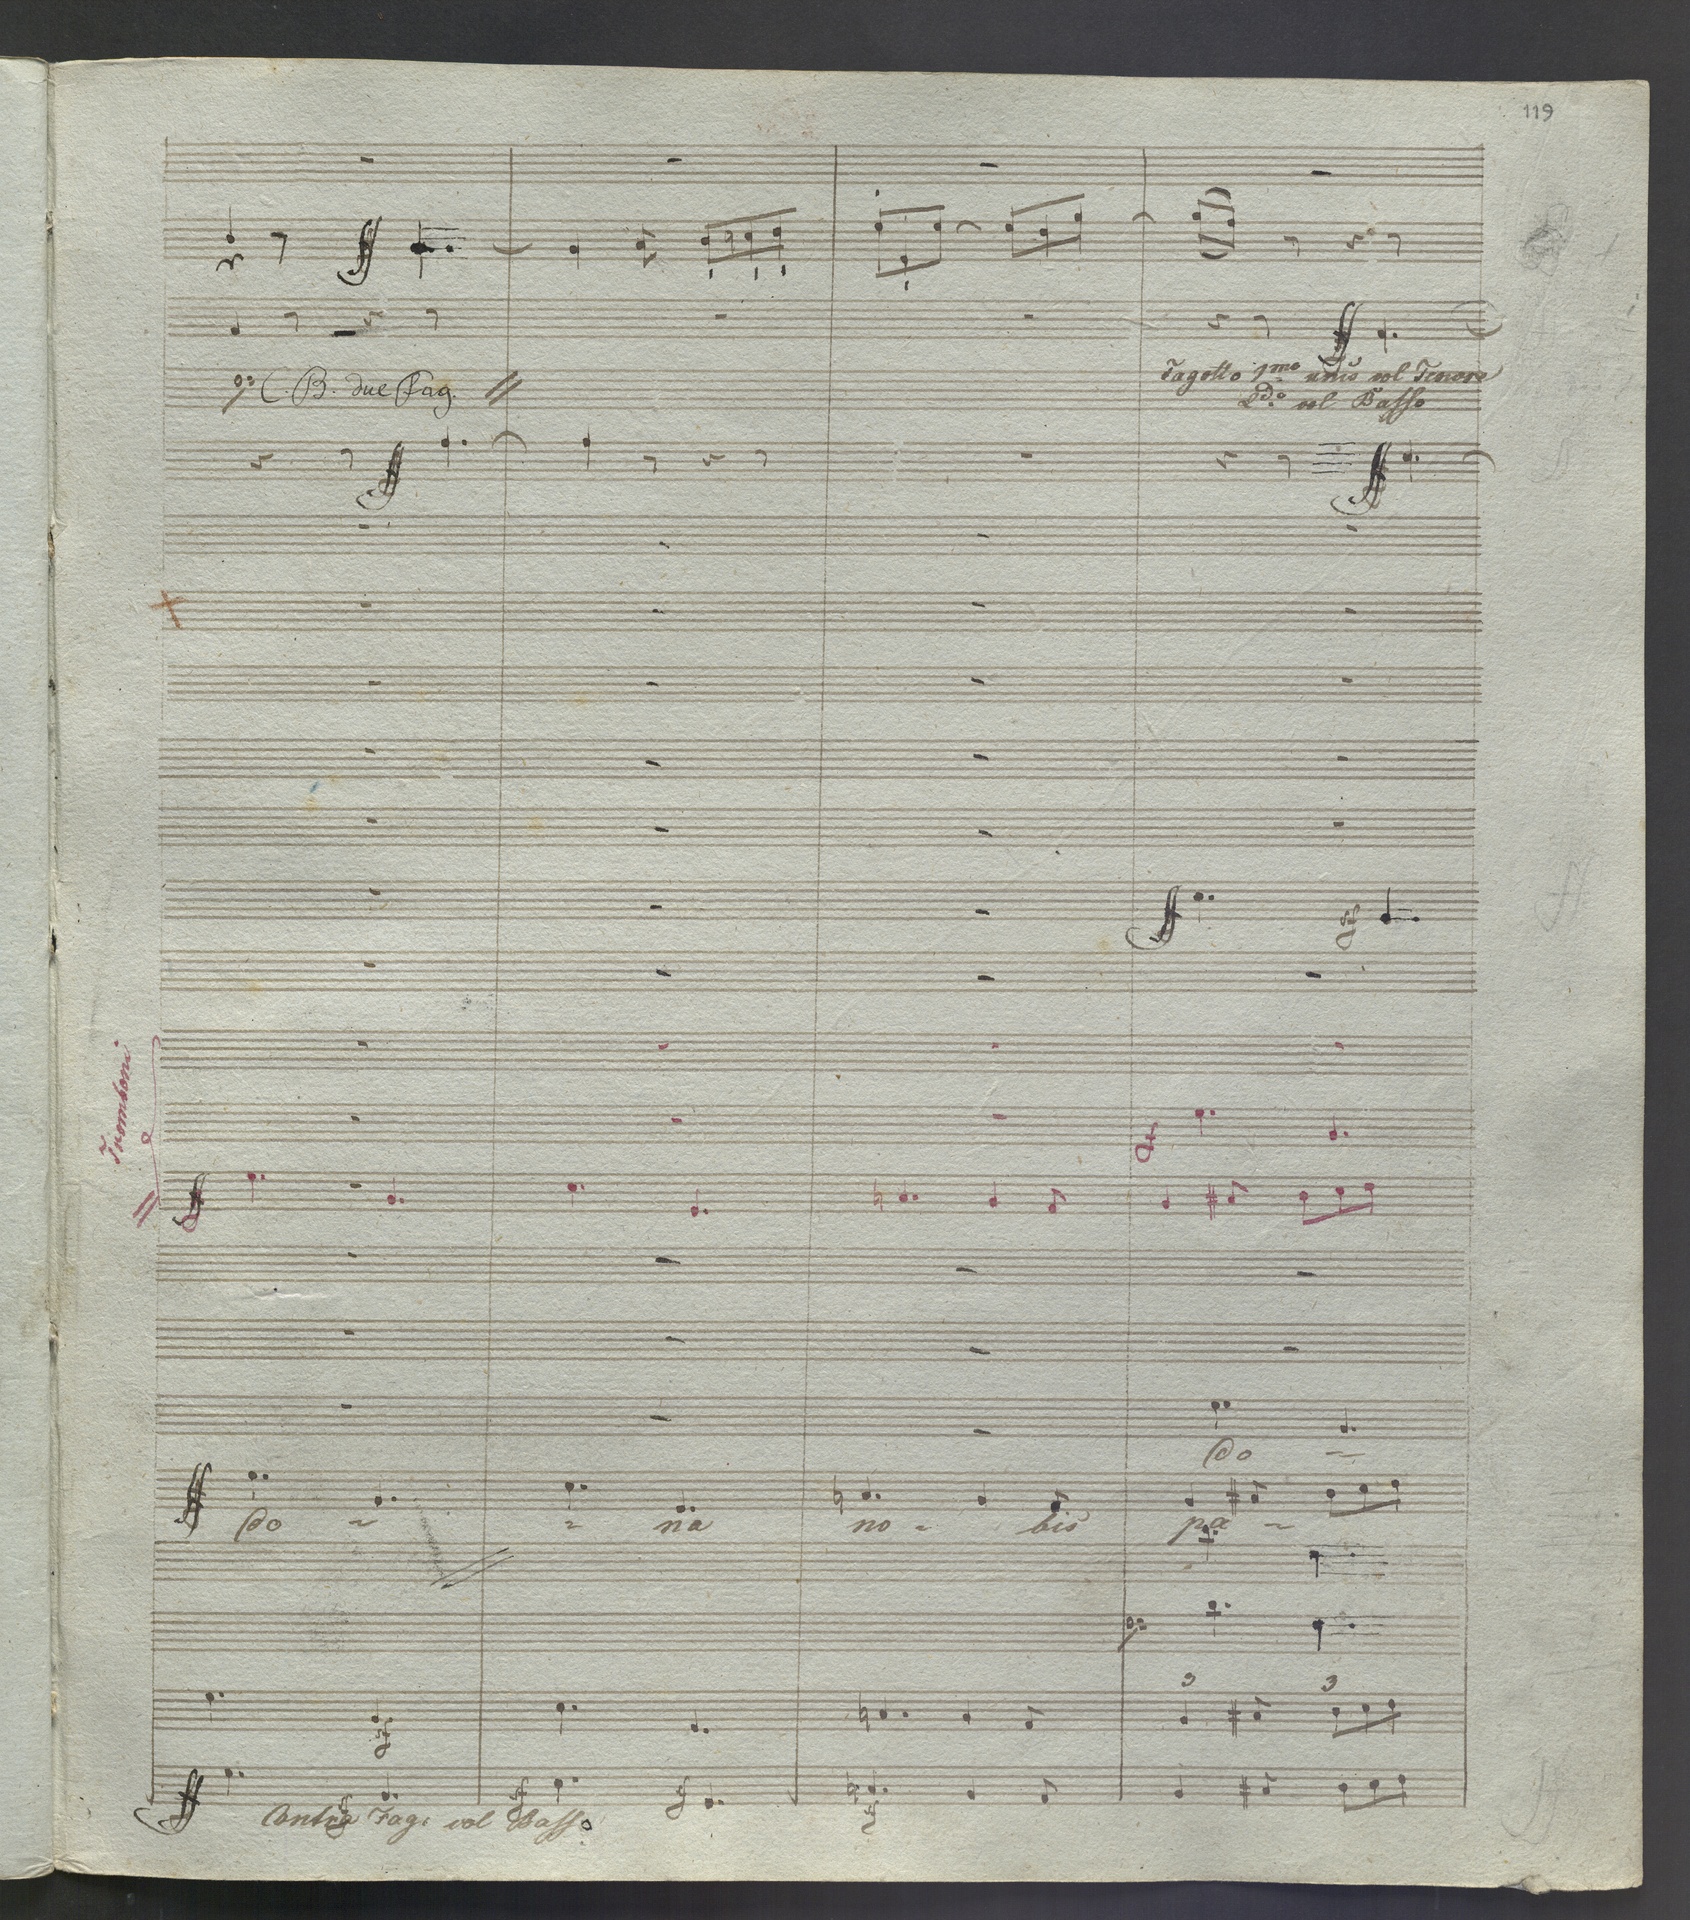 119
ff
C. B. due Fag. //
ff
Fagotto 1mo unis col Tenore
2do col Basso
ff
ff
ff
sf
Tromboni
ff
ff
Do -
ff
Do - - na no - bis pa -
3 3
sf
ff sf sf sf sf
Contra Fag: col Basso